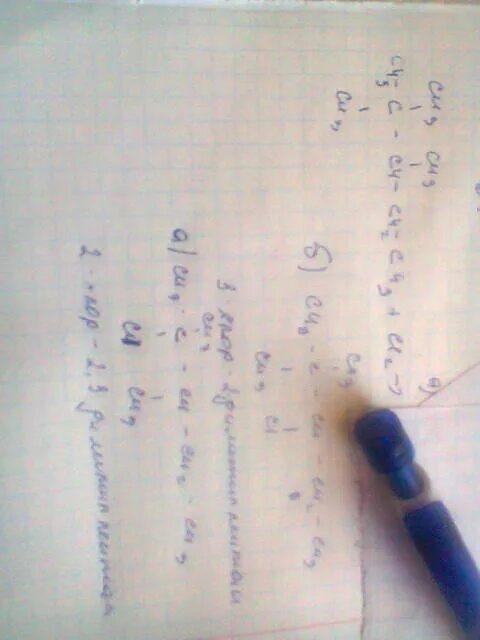 CH₃ CH₃
CH₃-C - CH-CH₂-CH₃ + Cl₂ →
CH₃
CH₃
б) CH₃ - C - CH - CH₂ - CH₃
CH₃ Cl
3-хлор-2
CH₃
а) CH₃ - C - CH - CH₂ - CH₃
Cl CH₃
2-хлор-2,3